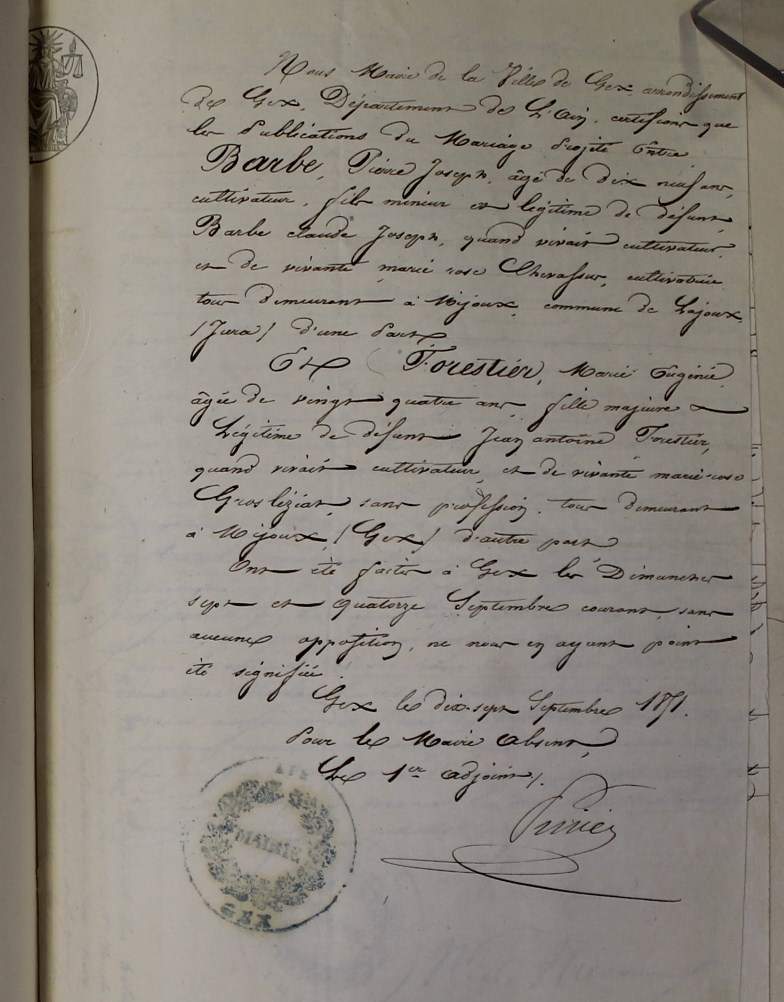 Nous Maire de la Ville de Gex arrondissement
de Gex, Département de L'Ain, certifions que
les Publications du Mariage Projeté Entre
Barbe, Pierre Joseph, âgé de dix neuf ans,
cultivateur, fils mineur et légitime de défunt
Barbe claude Joseph, quand vivait cultivateur,
et de vivante marie rose Chevassus, cultivatrice
tous demeurant à Mijoux, commune de Lajoux
(Jura) d'une Part
Et Forestier, Marie Eugénie
âgée de vingt quatre ans, fille majeure et
Légitime de défunt Jean antoine Forestier,
quand vivait cultivateur, et de vivante marie-rose
Grosléziat, sans profession, tous demeurant
à Mijoux, (Gex) d'autre part
Ont été faites à Gex les Dimanches
sept et Quatorze Septembre courant, sans
aucune opposition, ne nous en ayant point
été signifiée.
Gex le dix-sept Septembre
Pour le Maire Absent,
Le 1er adjoint,
AIN
MAIRIE
GEX